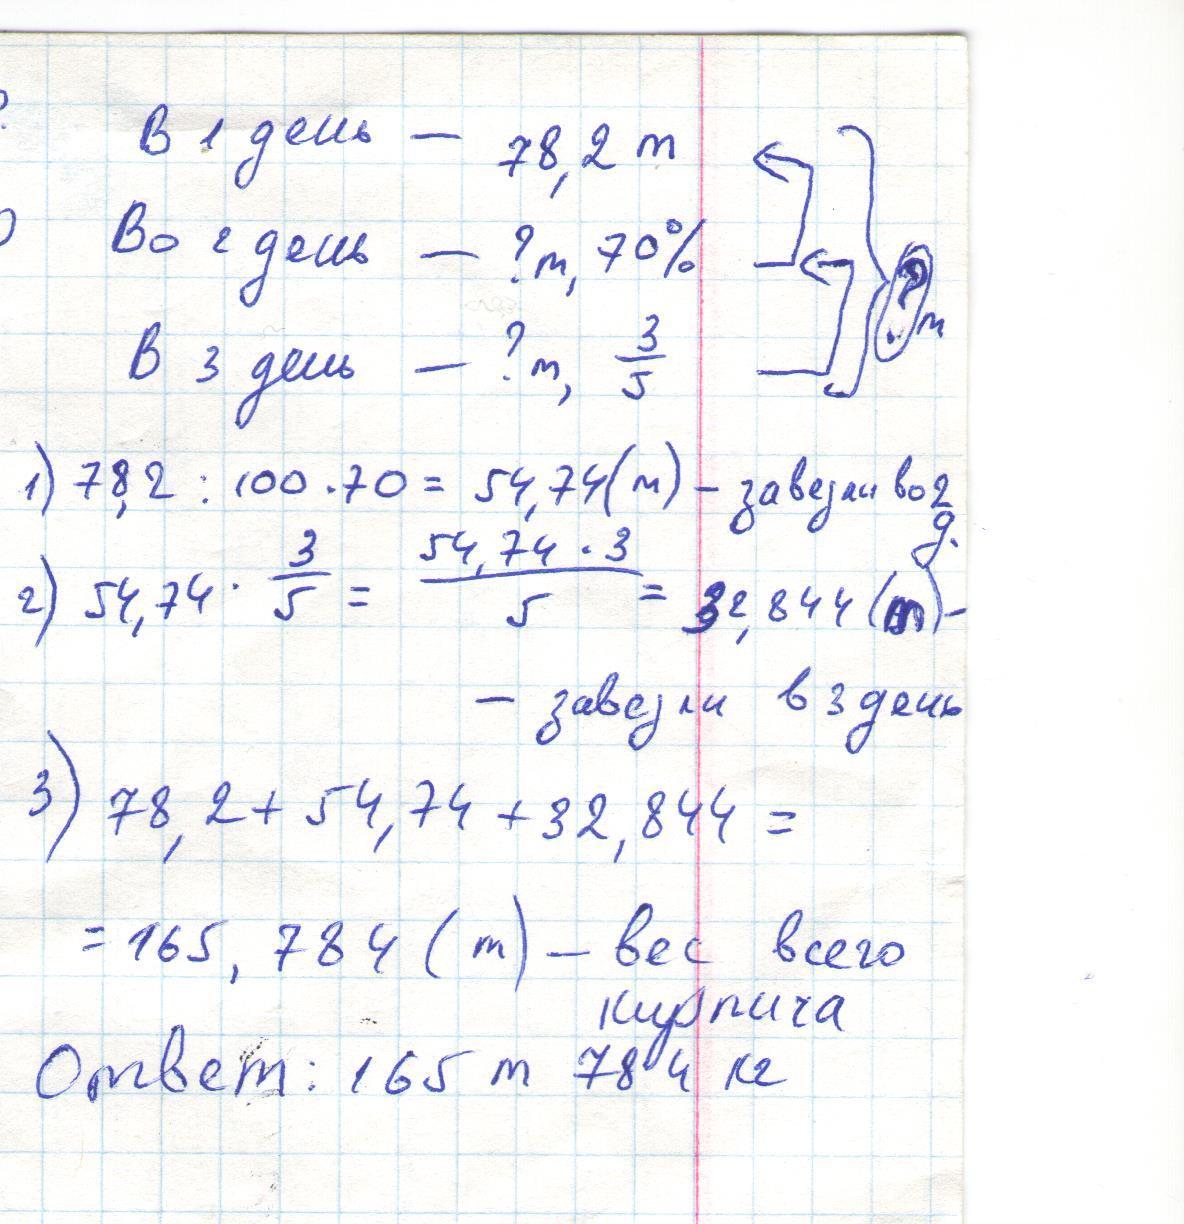 В 1 день — 78,2 т
Во 2 день — ? т, 70%
? т
В 3 день — ? т, 3/5
1) 78,2 : 100 · 70 = 54,74 (т) – завезли во 2 д.
2) 54,74 · 3/5 = 54,74 · 3/5 = 32,844 (т) –
– завезли в 3 день
3) 78,2 + 54,74 + 32,844 =
= 165,784 (т) – вес всего
кирпича
Ответ: 165 т 784 кг